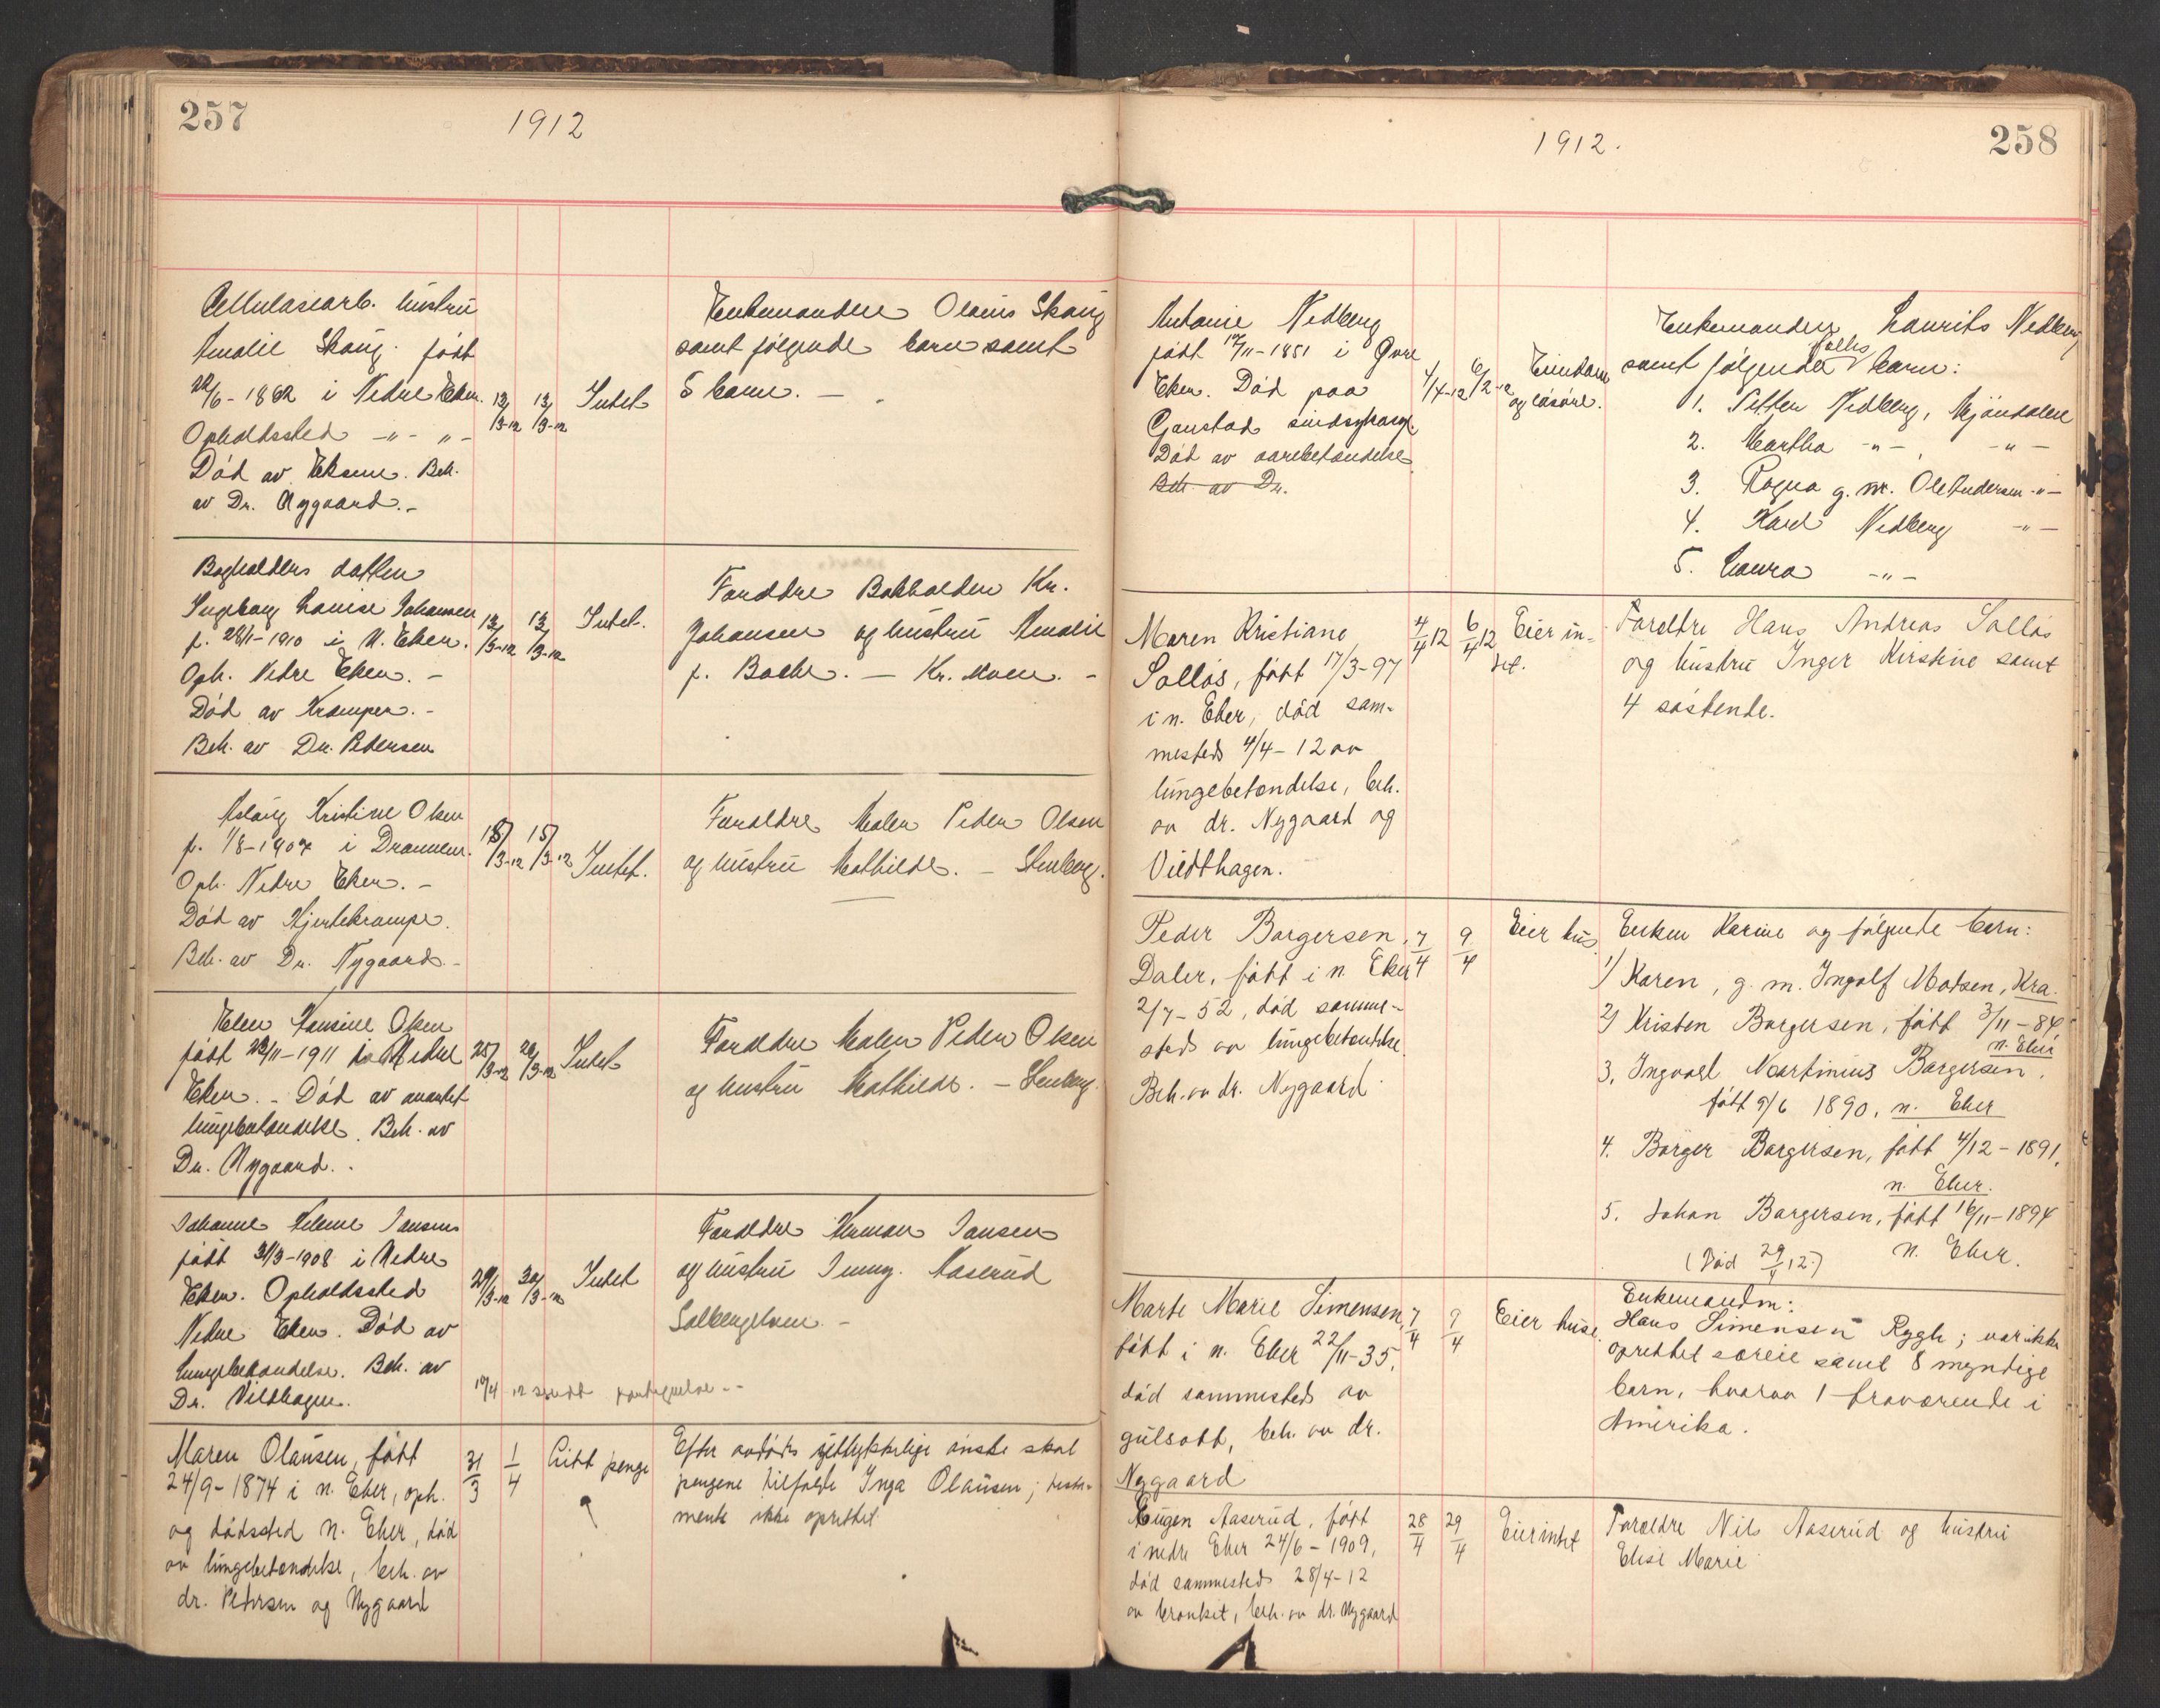 257
1912
Cellulosearb. hustru
Amalie Skaug. født
22/6-1862 i Nedre Eker.
Opholdssted -"- "-
Død av Eksem. Beh.
av Dr. Nygaard.-
13/3-12 13/3-12 Intet
Enkemanden Olaus Skaug
samt følgende barn samt
5 barn. -
Bogholders datter
Ingeborg Louise Johansen
f. 28/1-1910 i N. Eker.
Oph. Nedre Eker. -
Død av Kramper.-
Beh. av Dr. Petersen
13/3-12 13/3-12 Intet.
Forældre Bokholder Kr.
Johansen og hustru Amalie
f. Bache. - Kr. Moen. -
Aslaug Kristine Olsen
f. 1/8-1907 i Drammen.
Oph. Nedre Eker. -
Død av Hjertekrampe.
Beh. av Dr. Nygaard.-
15/3-12 15/3-12 Intet.
Forældre Maler Peder Olsen
og hustru Mathilde. - Stenberg.
Ellen Hansine Olsen
født 23/11-1911 i Nedre
Eker. - Død av
lungebetændelse. Beh. av
Dr. Nygaard. .
25/3-12 26/3-12 Intet
Forældre Maler Peder Olsen
og hustru Mathilde. - Stenberg.
Johanne Helene Jansen
født 31/3-1908 i Nedre
Eker. Opholdssted
Nedre Eker. Død av
lungebetændelse. Beh. av
Dr. Vildthagen.
29/3-12 30/3-12 Intet
Forældre Herman Jansen
og hustru Jenny. Aaserud
Solbergelven. -
Maren Olausen, født
24/9-1874 i n. Eker, oph.
og dødssted n. Eker, død
av lungebetændelse, beh. av
dr. Petersen og Nygaard
31/3 1/4 Litt penge
Efter avdødes ønske skal
pengene tilfalde Inga Olausen; testa-
mente ikke oprettet
258
1912.
Antonie Nedberg
født 17/11-1851 i Øvre
Eker. Død paa
Gaustad sindsykeasyl
Død av aarebetændelse
Beh. av Dr.
4/4-12 6/2-12 Eiendom
og løsøre.
Enkemanden Laurits Nedberg
samt følgende fælles barn:
1. Petter Nedberg, Mjøndalen
2. Martha -"-, -"-
3. Ragna g. m. Ole Andersen -"-
4. Karl Nedberg -"-
5. Laura -"-
Maren Kristiane
Solløs, født 17/3-97
i n. Eker, død sam-
mesteds 4/4-12 av
lungebetændelse, beh.
av dr. Nygaard og
Vildthagen.
4/4 12 6/4 12 Eier in-
tet.
Forældre Hans Andreas Solløs
og hustru Inger Kirstine samt
4 søskende.
Peder Borgersen
Daler, født i n Eker
2/7-52, død samme-
steds av lungebetændelse.
Beh. av dr. Nygaard
7/4 9/4 Eier hus
Enken Karine og følgende barn:
1) Karen, g. m. Ingolf Madsen, Kra.
2) Kristen Borgersen, født 3/11-84
n. Eker
3. Ingvael Martinius Borgersen,
født 9/6 1890, n. Eker
4. Borger Borgersen, født 4/12-1891,
n. Eker.
5. Johan Borgersen, født 16/11-1894
(Død 29/4 12) n. Eker.
Marte Marie Simensen
født i n. Eker 22/11-35,
død sammesteds av
gulsott, beh. av dr.
Nygaard
7/4 9/4 Eier huse.
Enkemanden:
Hans Simensen Rygh; var ikke
oprettet særeie samt 8 myndige
barn, hvorav 1 fraværende i
Amerika.
Eugen Aaserud, født
i nedre Eker 24/6-1909,
død sammesteds 28/4-12
av bronkit, beh. av dr. Nygaard
28/4 29/4 Eier intet
Forældre Nils Aaserud og hustru
Elise Marie